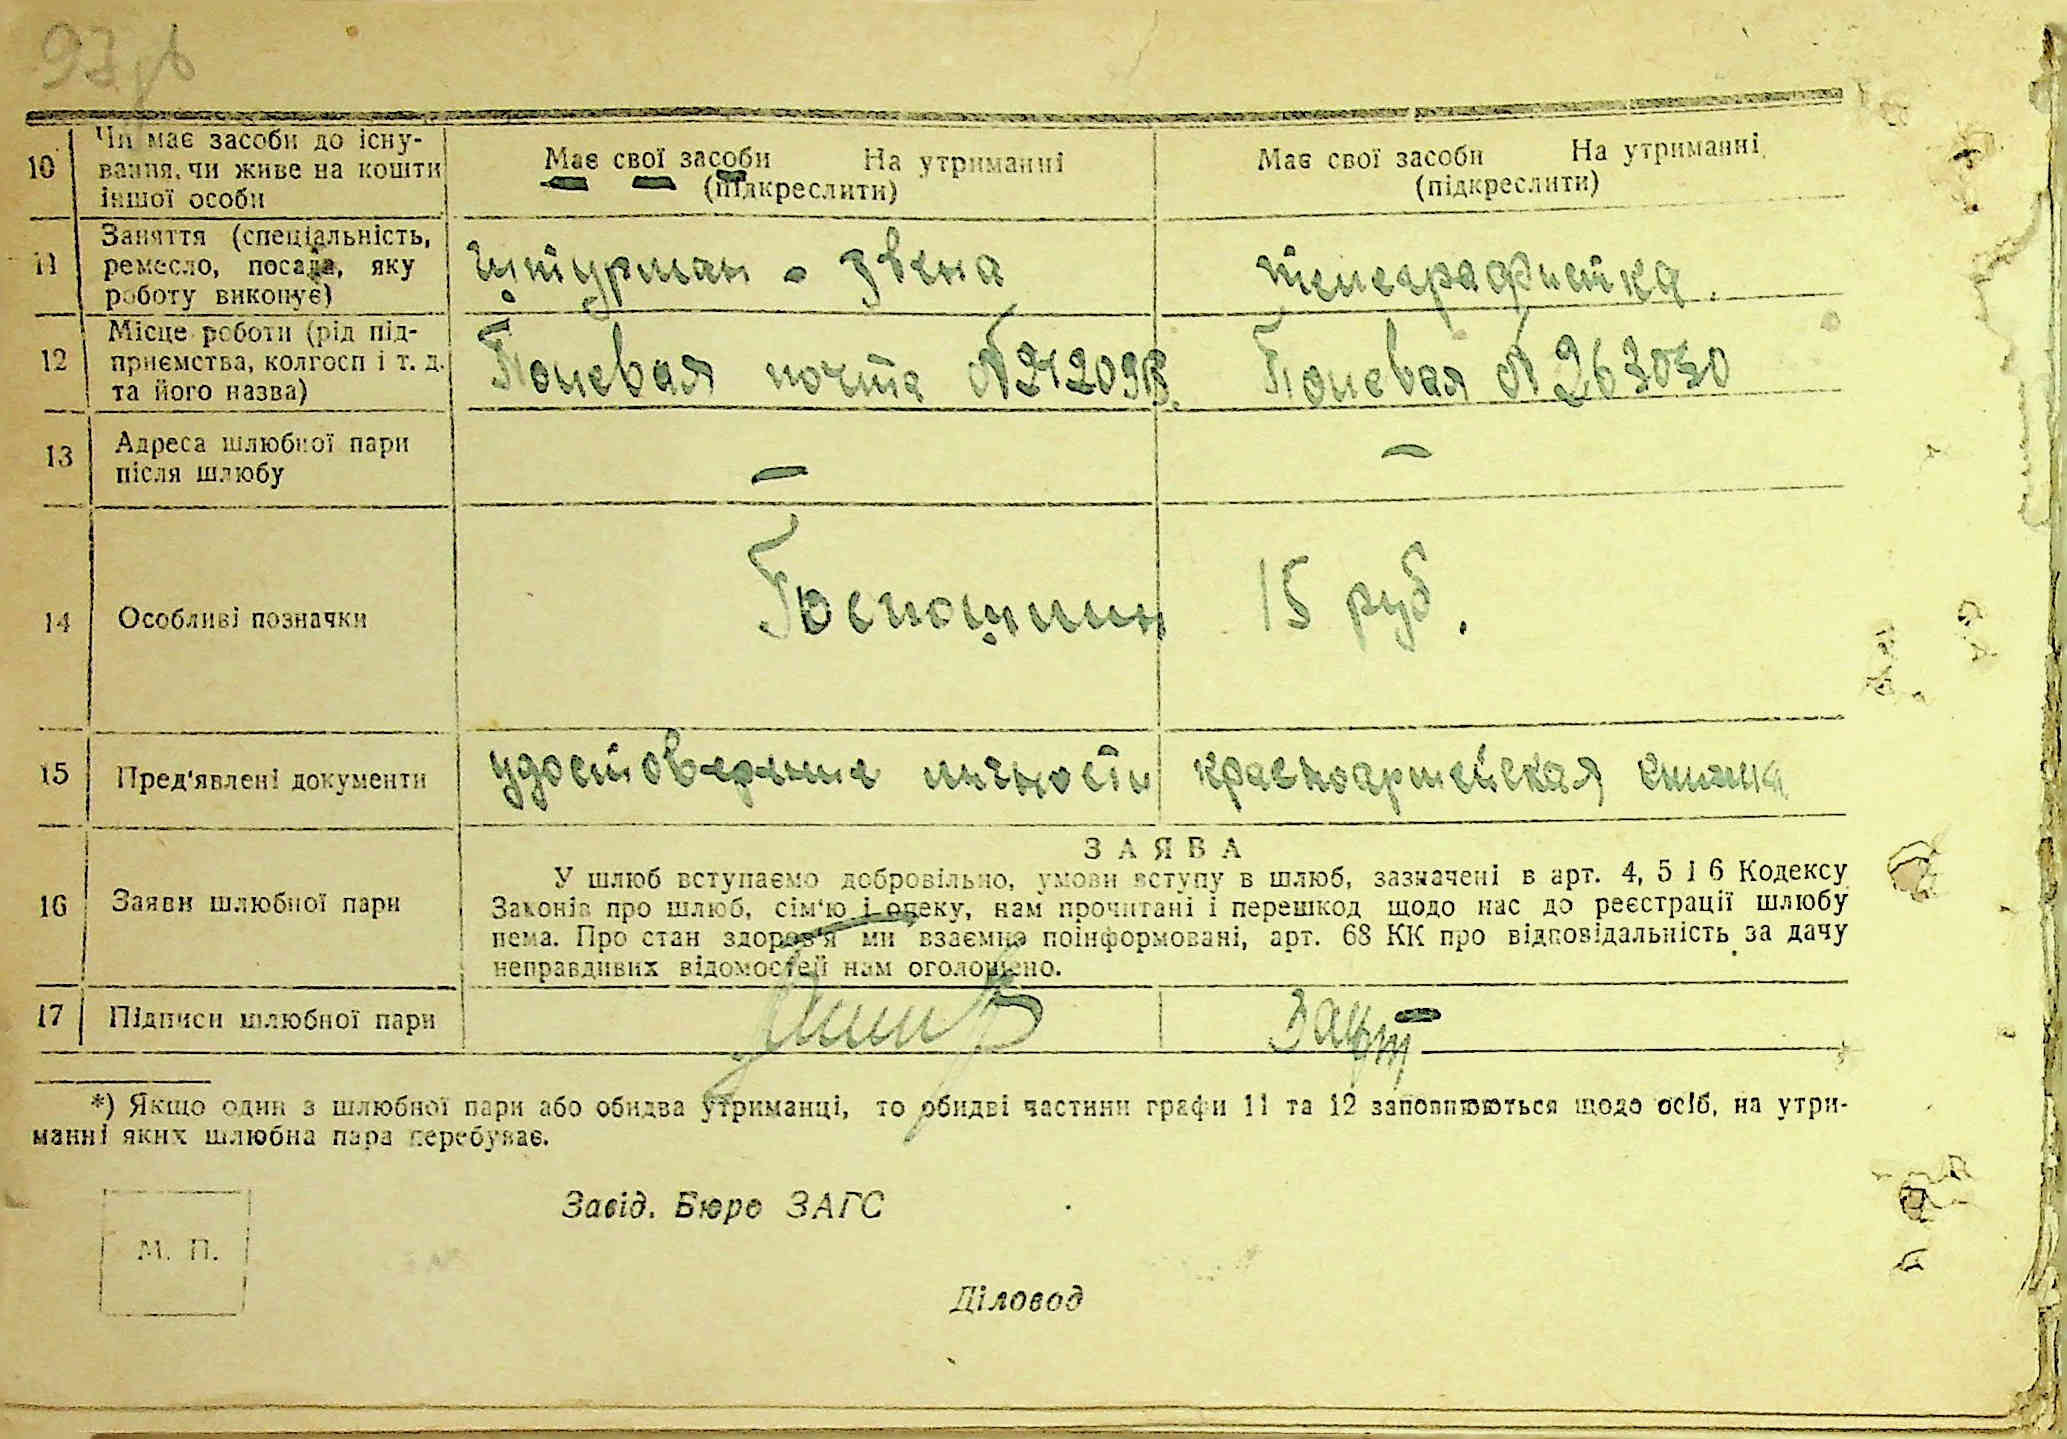 10 Чи має засоби до існування, чи живе на кошти іншої особи
Має свої засоби На утриманні (підкреслити)
Має свої засоби На утриманні (підкреслити)
11 Заняття (спеціальність, ремесло, посада, яку роботу виконує)
штурман - звена
телеграфистка.
12 Місце роботи (рід підприємства, колгосп і т. д. та його назва)
Полевая почта №
Полевая №
13 Адреса шлюбної пари після шлюбу
—
—
14 Особливі позначки
Госпошлин 15 руб.
15 Пред'явлені документи
удостоверение личности
красноармейская книжка
16 Заяви шлюбної пари
ЗАЯВА
У шлюб вступаємо добровільно, умови вступу в шлюб, зазначені в арт. 4, 5 і 6 Кодексу
Законів про шлюб, сім'ю і опеку, нам прочитані і перешкод щодо нас до реєстрації шлюбу
нема. Про стан здоров'я ми взаємно поінформовані, арт. 68 КК про відповідальність за дачу
неправдивих відомостей нам оголошено.
17 Підписи шлюбної пари
*) Якщо один з шлюбної пари або обидва утриманці, то обидві частини графи 11 та 12 заповнюються щодо осіб, на утри-
манні яких шлюбна пара перебуває.
Завід. Бюро ЗАГС
М. П.
Діловод